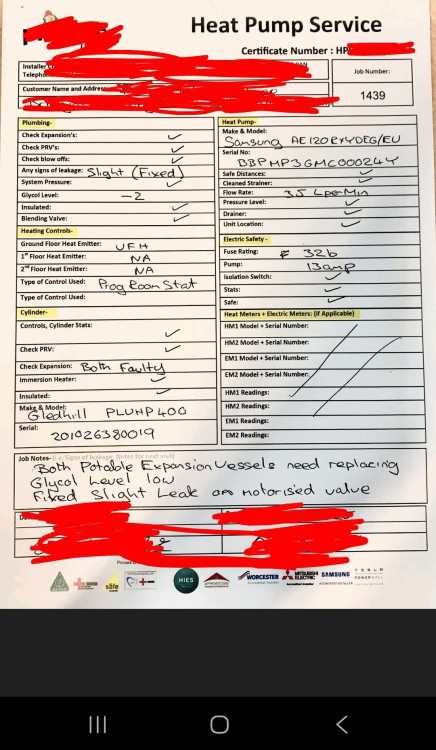 Heat Pump Service
Certificate Number : HP
Installer
Teleph
Job Number:
1439
Customer Name and Addres
Plumbing-
Check Expansion's: ✓
Check PRV's: ✓
Check blow offs: ✓
Any signs of leakage: Slight (Fixed)
System Pressure: ✓
Glycol Level: -2
Insulated: ✓
Blending Valve: ✓
Heating Controls-
Ground Floor Heat Emitter: UFH
1st Floor Heat Emitter: NA
2nd Floor Heat Emitter: NA
Type of Control Used: Prog Room Stat
Type of Control Used:
Cylinder-
Controls, Cylinder Stats: ✓
Check PRV: ✓
Check Expansion: Both Faulty
Immersion Heater: ✓
Insulated: ✓
Make & Model:
Gledhill PLUHP400
Serial:
201026380019
Heat Pump-
Make & Model:
Samsung AE120RXYDEG/EU
Serial No:
BBPMP3GMC00024Y
Safe Distances: ✓
Cleaned Strainer: ✓
Flow Rate: 35 LperMin
Pressure Level: ✓
Drainer: ✓
Unit Location: ✓
Electric Safety -
Fuse Rating: 32b
Pump: 13amp
Isolation Switch: ✓
Stats: ✓
Safe: ✓
Heat Meters + Electric Meters: (if Applicable)
HM1 Model + Serial Number:
HM2 Model + Serial Number:
EM1 Model + Serial Number:
EM2 Model + Serial Number:
HM1 Readings:
HM2 Readings:
EM1 Readings:
EM2 Readings:
Job Notes- (i.e. Signs of leakage, Notes for next visit)
Both Potable Expansion Vessels need replacing
Glycol Level low
Fixed Slight Leak on Motorised valve
HIES
WORCESTER
MITSUBISHI ELECTRIC
SAMSUNG
TESLA
POWERWALL